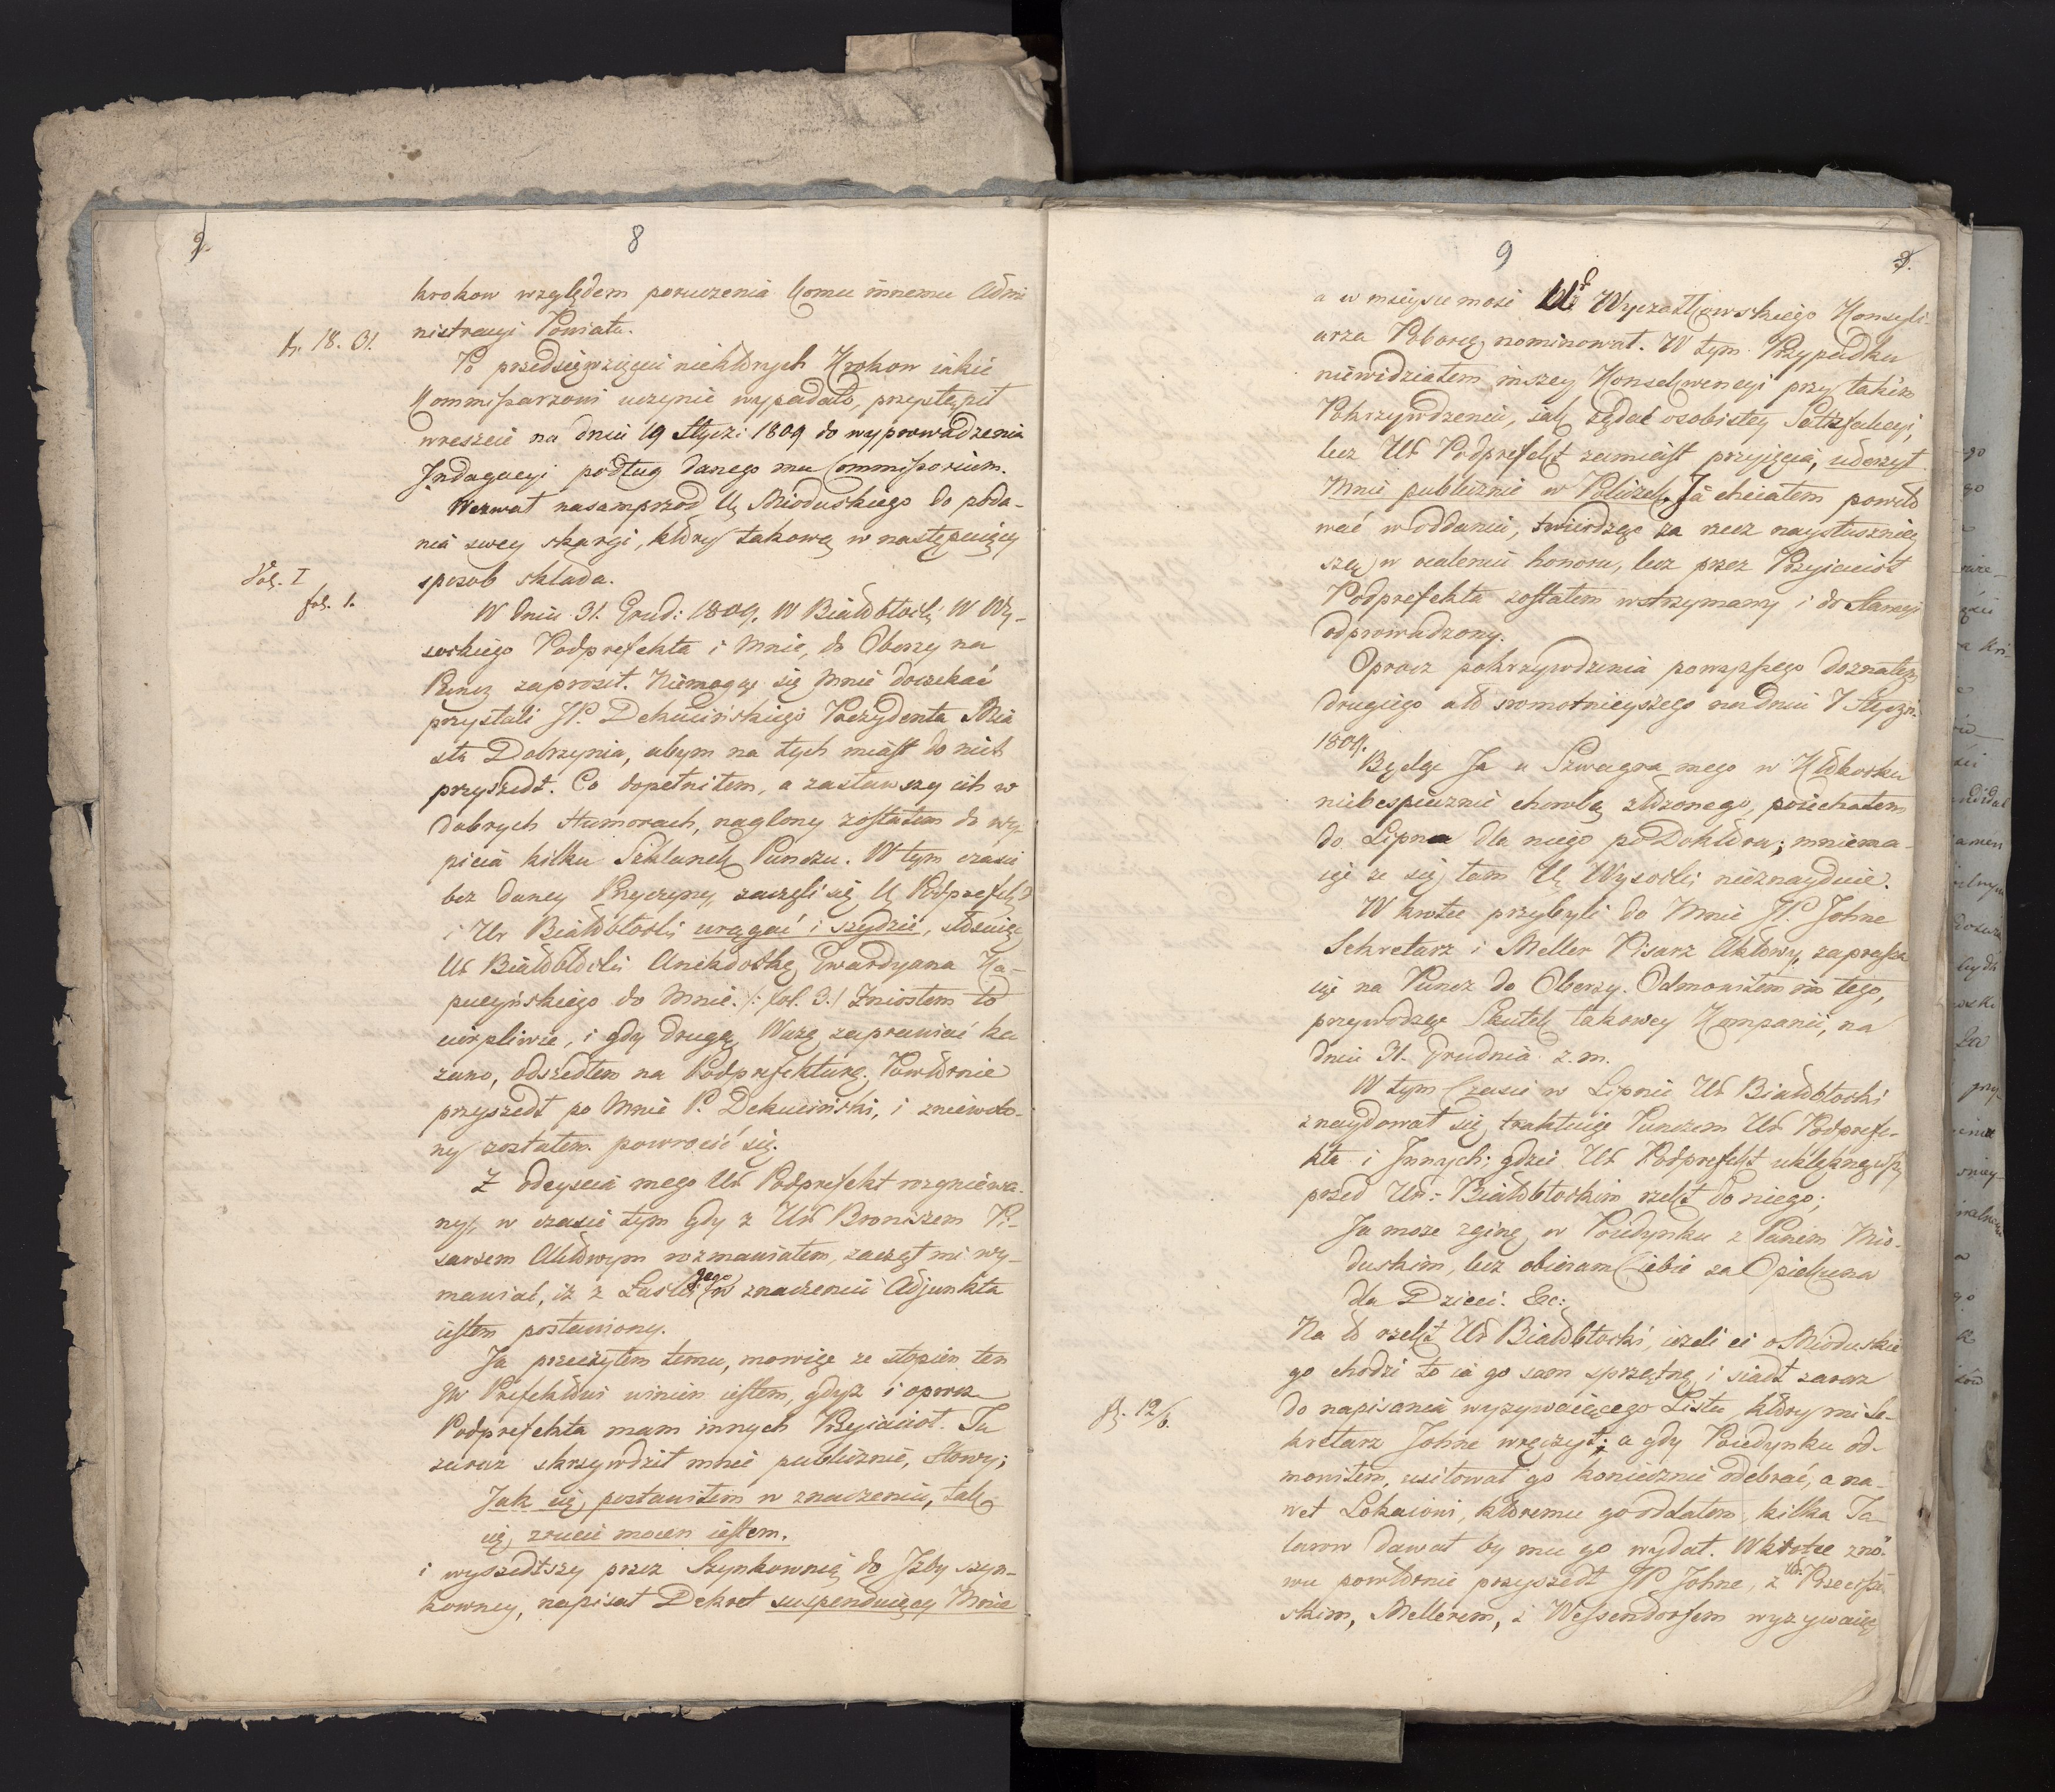 8
krokow względem poruczenia komu innemu Admi
nistracyi Powiatu.
fs. 18. 31.
Po przedsięwzięciu niektorych Krokow iakie
Kommissarzowi uczynić wypadało, przystąpił
wreszcie na dniu 19 Stycz: 1809 do wyprowadzenia
Jndagacyi podług danego mu Commissorium.
Wezwał nasamprzod Ur Mioduskiego do poda-
nia swey skargi, ktory takową w następuiący
Vol. I
fol. 1.
sposob składa.
W dniu 31. Grud: 1809. W Białobłocki W Wy-
sockiego Podprefekta i mnie, do Oberży na
Puncz zaprosił. Niemogąc się mnie doczekać
przysłali JP. Dekucińskiego Prezydenta Mia
sta Dobrzynia, abym na tych miast do nich
przyszedł. Co dopełniłem, a zastawszy ich w
dobrych Humorach, naglony zostałem do wy
picia kilku Szklanek Punczu. W tym czasie
bez daney Przyczyny zaczęli się Ur Podprefekt
i Ur Białobłocki urągać i szydzić, stosuiąc
Ur Białobłocki Anekdotkę Gwardyana Ka-
pucyńskiego do mnie. /: fol. 3./ Zniosłem to
cierpliwie, i gdy drugą Wazę zaprawiać ka
zano, odszedłem na Podprefekturę. Powtornie
przyszedł po mnie P. Dekuciński, i zniewolo-
ny zostałem powrocić się.
Z odeyścia mego Ur Podprefekt rozgniewa-
ny, w czasie tym gdy z Ur Broniszem Pi-
sarzem Aktowym rozmawiałem, zaczął mi wy-
mawiać, iż z Łaski jego w znaczeniu Adjunkta
iestem postawiony.
Ja przeczyłem temu, mowiąc ze stopień ten
JW Prefektowi winien iestem, gdyż i oprocz
Podprefekta mam innych Przyiacioł. Tu
zaraz skrzywdził mnie publicznie, słowy;
Jak cię postawiłem w znaczeniu, tak
cię zrucić mocen iestem.
i wyszedłszy przez Szynkownią do Jzby szyn-
kowney, napisał Dekret suspenduiący mnie
9
a w mieysce moie Ur Wyczałkowskiego Konsyli-
arza Poborcę nominował. W tym Przypadku
niewidziałem inszey Konsekwencyi przy takim
Pokrzywdzeniu, iak żądać osobistey Satisfakcyi,
lecz Ur Podprefekt zamiast przyjęcia, uderzył
mnie publicznie w Policzek. Ja chciałem powto
wać w oddaniu, twierdząc za rzecz naysłuszniey
szą w ocaleniu honoru, lecz przez Przyiacioł
Podprefekta zostałem wstrzymany i do Stancyi
odprowadzony.
Oprocz pokrzywdzenia powyzszego doznałem
drugiego ato sromotnieyszego na dniu 7 Stycz:
1809.
Będąc Ja u Szwagra mego w Kłokocku
niebespiecznie chorobą złożonego, poiechałem
do Lipna dla niego po Doktora; mniema-
iąc ze się tam Ur Wysocki nieznayduie.
W krotce przybyli do mnie JP. Johne
Sekretarz i Meller Pisarz Aktowy zaprasza
iąc na Puncz do Oberży. Odmowiłem im tego,
przywodząc Skutek takowey Kompanii, na
dniu 31. Grudnia z. m.
W tym Czasie w Lipnie Ur Białobłocki
znaydował się, traktuiąc Punczem Ur Podprefe-
kta i Jnnych; gdzie Ur Podprefekt uklęknąwszy
przed Ur: Białobłockim rzekł do niego;
Ja może zginę w Poiedynku z Panem Mio-
duskim, lecz obieram Ciebie za Opiekuna
dla Dzieci. &c:
Na to rzekł Ur Białobłocki, ieżeli ci o Mioduskie
go chodzi to ia go sam sprzątnę, i siadł zaraz
fs. 12/6.
do napisania wyzywaiącego Listu, ktory mi Se-
kretarz Johne wręczył; a gdy Poiedynku od-
mowiłem, usiłował go koniecznie odebrać, a na-
wet Lokaiowi, ktoremu go oddałem, kilka Ta-
larow dawał by mu go wydał. Wkrotce zno-
wu powtornie przyszedł JP Johne, z Ur. Przeciszew
skim, Mellerem, i Wessendorfem wyzywaiąc